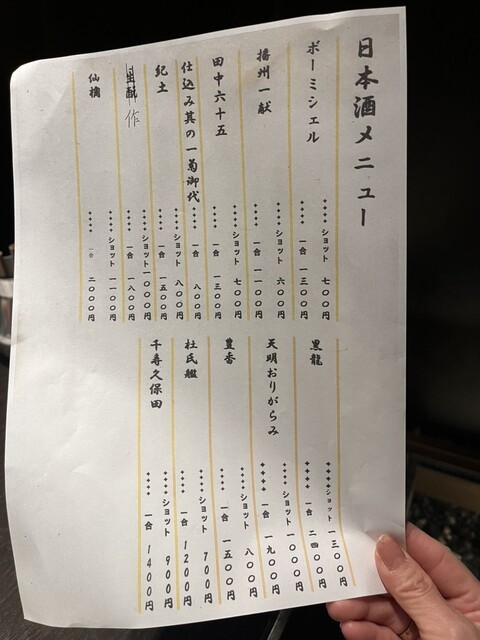 日本酒メニュー
ボーミシェル
++++ショット 七〇〇円
++++ 一合 一三〇〇円
播州一献
++++ショット 六〇〇円
++++ 一合 一一〇〇円
田中六十五
++++ショット 七〇〇円
++++ 一合 一三〇〇円
仕込み其の一菊御代
++++ 一合 八〇〇円
紀土
++++ショット 八〇〇円
++++ 一合 一五〇〇円
作
++++ショット一〇〇〇円
++++ 一合 一八〇〇円
仙禽
++++ショット 一一〇〇円
++++ 一合 二〇〇〇円
黒龍
++++ショット 一三〇〇円
++++ 一合 二四〇〇円
天明おりがらみ
++++ショット 一〇〇〇円
++++ 一合 一九〇〇円
豊香
++++ショット 八〇〇円
++++ 一合 一五〇〇円
杜氏艦
++++ショット 700円
++++ 一合 1200円
千寿久保田
++++ショット 900円
++++ 一合 1400円